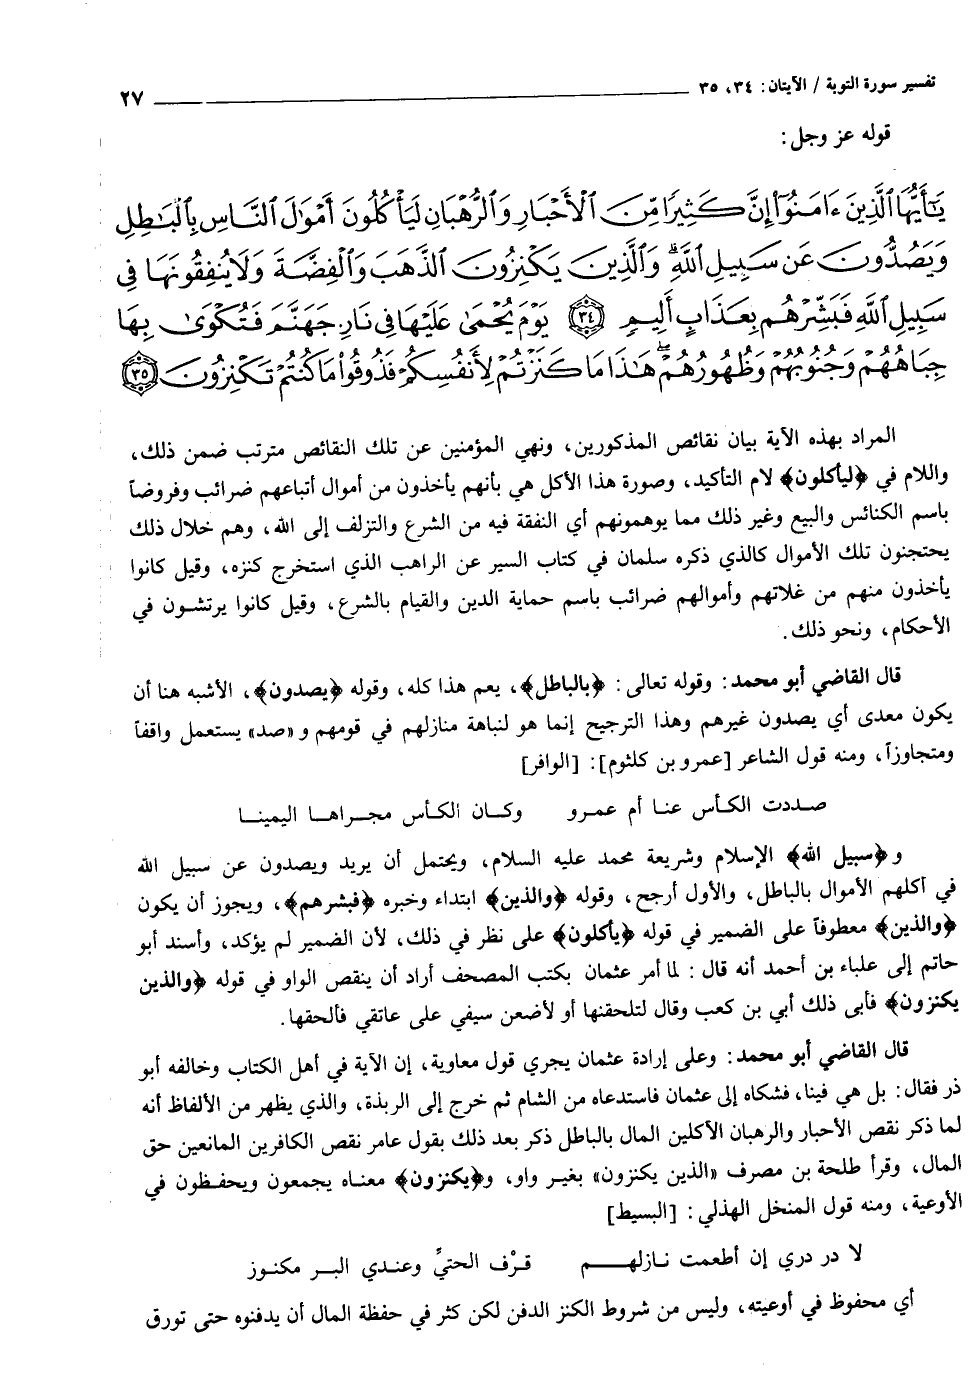 تفسير سورة التوبة / الآيتان: ٣٤، ٣٥ ٢٧
قوله عز وجل:
يَٰٓأَيُّهَا ٱلَّذِينَ ءَامَنُوٓا۟ إِنَّ كَثِيرًا مِّنَ ٱلْأَحْبَارِ وَٱلرُّهْبَانِ لَيَأْكُلُونَ أَمْوَٰلَ ٱلنَّاسِ بِٱلْبَٰطِلِ
وَيَصُدُّونَ عَن سَبِيلِ ٱللَّهِ ۗ وَٱلَّذِينَ يَكْنِزُونَ ٱلذَّهَبَ وَٱلْفِضَّةَ وَلَا يُنفِقُونَهَا فِى
سَبِيلِ ٱللَّهِ فَبَشِّرْهُم بِعَذَابٍ أَلِيمٍ ﴿٣٤﴾ يَوْمَ يُحْمَىٰ عَلَيْهَا فِى نَارِ جَهَنَّمَ فَتُكْوَىٰ بِهَا
جِبَاهُهُمْ وَجُنُوبُهُمْ وَظُهُورُهُمْ ۖ هَٰذَا مَا كَنَزْتُمْ لِأَنفُسِكُمْ فَذُوقُوا۟ مَا كُنتُمْ تَكْنِزُونَ ﴿٣٥﴾
المراد بهذه الآية بيان نقائص المذكورين، ونهي المؤمنين عن تلك النقائص مترتب ضمن ذلك،
واللام في ﴿ليأكلون﴾ لام التأكيد، وصورة هذا الأكل هي بأنهم يأخذون من أموال أتباعهم ضرائب وفروضاً
باسم الكنائس والبيع وغير ذلك مما يوهمونهم أي النفقة فيه من الشرع والتزلف إلى الله، وهم خلال ذلك
يحتجنون تلك الأموال كالذي ذكره سلمان في كتاب السير عن الراهب الذي استخرج كنزه، وقيل كانوا
يأخذون منهم من غلاتهم وأموالهم ضرائب باسم حماية الدين والقيام بالشرع، وقيل كانوا يرتشون في
الأحكام، ونحو ذلك.
قال القاضي أبو محمد: وقوله تعالى: ﴿بالباطل﴾، يعم هذا كله، وقوله ﴿يصدون﴾، الأشبه هنا أن
يكون معدى أي يصدون غيرهم وهذا الترجيح إنما هو لنباهة منازلهم في قومهم و «صد» يستعمل واقفاً
ومتجاوزاً، ومنه قول الشاعر [عمرو بن كلثوم]: [الوافر]
صددت الكأس عنا أم عمرو وكان الكأس مجراها اليمينا
و ﴿سبيل الله﴾ الإسلام وشريعة محمد عليه السلام، ويحتمل أن يريد ويصدون عن سبيل الله
في أكلهم الأموال بالباطل، والأول أرجح، وقوله ﴿والذين﴾ ابتداء وخبره ﴿فبشرهم﴾، ويجوز أن يكون
﴿والذين﴾ معطوفاً على الضمير في قوله ﴿يأكلون﴾ على نظر في ذلك، لأن الضمير لم يؤكد، وأسند أبو
حاتم إلى علباء بن أحمد أنه قال: لما أمر عثمان بكتب المصحف أراد أن ينقص الواو في قوله ﴿والذين
يكنزون﴾ فأبى ذلك أبي بن كعب وقال لتلحقنها أو لأضعن سيفي على عاتقي فألحقها.
قال القاضي أبو محمد: وعلى إرادة عثمان يجري قول معاوية، إن الآية في أهل الكتاب وخالفه أبو
ذر فقال: بل هي فينا، فشكاه إلى عثمان فاستدعاه من الشام ثم خرج إلى الربذة، والذي يظهر من الألفاظ أنه
لما ذكر نقص الأحبار والرهبان الآكلين المال بالباطل ذكر بعد ذلك بقول عامر نقص الكافرين المانعين حق
المال، وقرأ طلحة بن مصرف «الذين يكنزون» بغير واو، و﴿يكنزون﴾ معناه يجمعون ويحفظون في
الأوعية، ومنه قول المنخل الهذلي: [البسيط]
لا در دري إن أطعمت نازلهم قرْف الحتيِّ وعندي البر مكنوز
أي محفوظ في أوعيته، وليس من شروط الكنز الدفن لكن كثر في حفظة المال أن يدفنوه حتى تورق